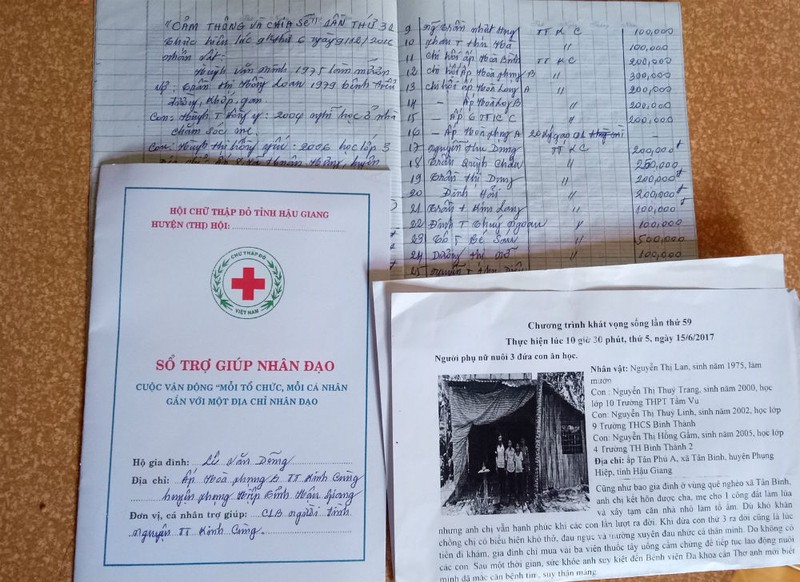 "CẢM THÔNG VÀ CHIA SẺ" LẦN THỨ 32
nhân vật:
Huỳnh Văn Minh 1975 làm mướn
Vợ: Trần thị Hồng Loan 1979 bệnh tiểu
đường, khớp, gan.
Con: Huỳnh T Hồng y: 2004 nghỉ học ở nhà
chăm sóc mẹ.
Con: Huỳnh thị hồng yến: 2006 học lớp 3
9 TT K C 100,000
10 Phan T thu Hà " 100,000
11 chi hội ấp Hòa Bình TT K C 200,000
12 chi hội ấp Hòa phụng B " 300,000
13 chi hội ấp Hòa Long A " 200,000
14 - Ấp Hòa Long B " 200,000
15 - Ấp 6 TT K C " 200,000
16 - Ấp Hòa phụng A 20 kg gạo
17 nguyễn Thu Dung TT K C 200,000
18 Trần Quỳnh Châu " 200,000
19 Trần Thị Dung " 200,000
20 Đinh " 200,000
21 Trần T Kim Lang " 100,000
22 Đinh T Thúy Ngoan " 100,000
23 T Bé Sáu " 500,000
24 Dương thị " 100,000
25 nguyễn T Thu
HỘI CHỮ THẬP ĐỎ TỈNH HẬU GIANG
HUYỆN (THỊ) HỘI:
CHỮ THẬP ĐỎ
VIỆT NAM
SỔ TRỢ GIÚP NHÂN ĐẠO
CUỘC VẬN ĐỘNG "MỖI TỔ CHỨC, MỖI CÁ NHÂN
GẮN VỚI MỘT ĐỊA CHỈ NHÂN ĐẠO
Hộ gia đình: Lê Văn Dững
Địa chỉ: Ấp Hòa phụng B TT Kinh Cùng
huyện phụng Hiệp Tỉnh Hậu Giang
Đơn vị, cá nhân trợ giúp: CLB người tình
nguyện TT Kinh Cùng.
Chương trình khát vọng sống lần thứ 59
Thực hiện lúc 10 giờ 30 phút, thứ 5, ngày 15/6/2017
Người phụ nữ nuôi 3 đứa con ăn học.
Nhân vật: Nguyễn Thị Lan, sinh năm 1975, làm
mướn
Con : Nguyễn Thị Thuỳ Trang, sinh năm 2000, học
lớp 10 Trường THPT Tầm Vu
Con: Nguyễn Thị Thuỳ Linh, sinh năm 2002, học lớp
9 Trường THCS Bình Thành
Con: Nguyễn Thị Hồng Gấm, sinh năm 2005, học lớp
4 Trường TH Bình Thành 2
Địa chỉ: ấp Tân Phú A, xã Tân Bình, huyện Phụng
Hiệp, tỉnh Hậu Giang
Cũng như bao gia đình ở vùng quê nghèo xã Tân Bình,
anh chị kết hôn được cha, mẹ cho 1 công đất làm lúa
và xây tạm căn nhà nhỏ làm tổ ấm. Dù khó khăn
nhưng anh chị vẫn hạnh phúc khi các con lần lượt ra đời. Khi đứa con thứ 3 ra đời cũng là lúc
chồng chị có biểu hiện khó thở, đau ngực và thường xuyên đau nhức cả thân mình. Do không có
tiền đi khám, gia đình chỉ mua vài ba viên thuốc tây uống cầm chừng để tiếp tục lao động nuôi
các con. Sau một thời gian, sức khỏe anh suy kiệt đến Bệnh viện Đa khoa Cần Thơ anh mới biết
mình đã mắc căn bệnh tim, suy thận mạn